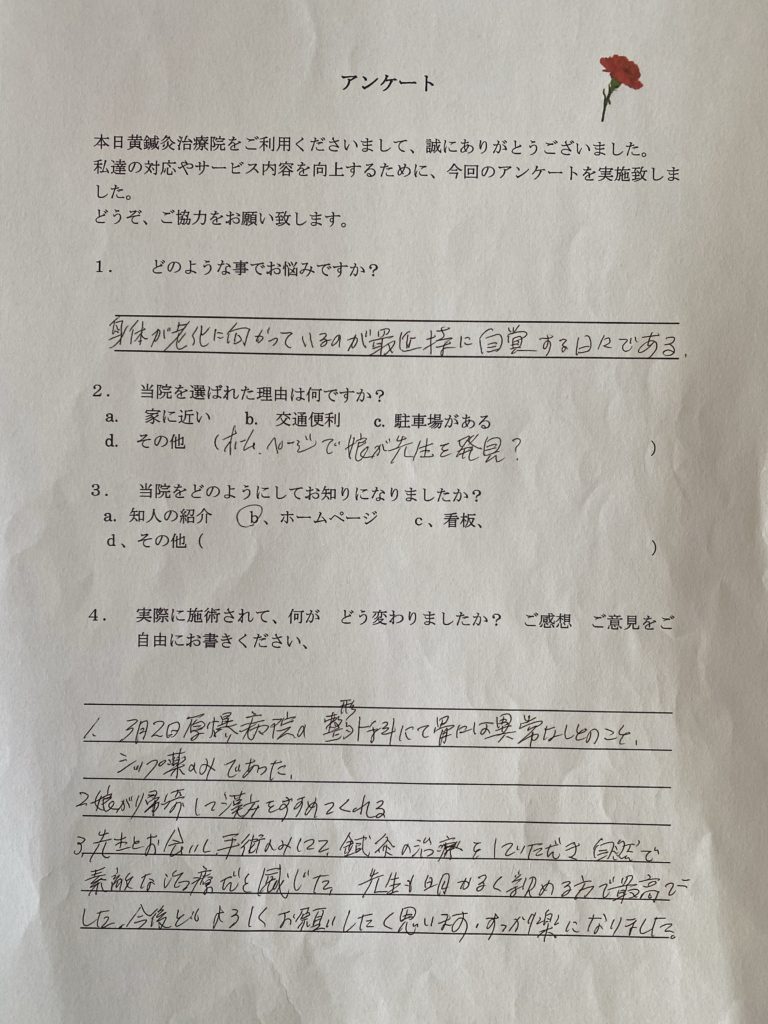 アンケート
本日黄鍼灸治療院をご利用くださいまして、誠にありがとうございました。
私達の対応やサービス内容を向上するために、今回のアンケートを実施致しま
した。
どうぞ、ご協力をお願い致します。
１． どのような事でお悩みですか？
身体が老化に向かっているのが最近特に自覚する日々である.
２． 当院を選ばれた理由は何ですか？
a. 家に近い b. 交通便利 c. 駐車場がある
d. その他 (ホームページで娘が先生を発見? )
３． 当院をどのようにしてお知りになりましたか？
a. 知人の紹介 b、ホームページ c、看板、
d、その他 ( )
４． 実際に施術されて、何が どう変わりましたか？ ご感想 ご意見をご
自由にお書きください、
1. 3月2日原爆病院の整形外科にて骨には異常なしとのこと.
シップ薬のみであった.
2 娘が帰宅して漢方をすすめてくれる
3. 先生とお会いし 手術のみにて 鍼灸の治療をしていただき 自然で
素敵な治療だと感じた 先生も明かるく 方で最高で
した. 今後ともよろしくお願いしたく思います. すっかり楽になりました。